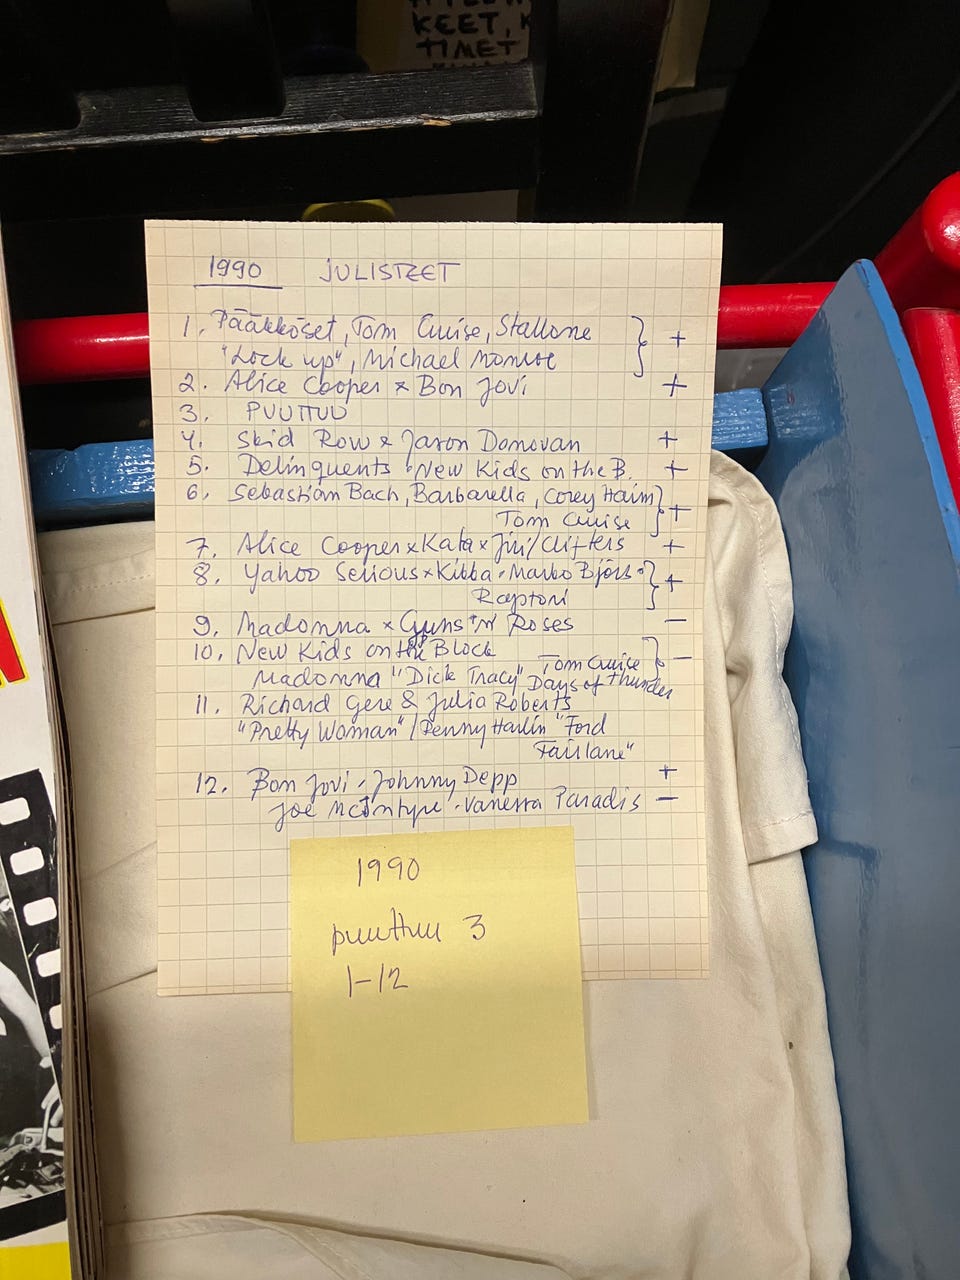 KEET, K
TIMET
1990 JULISTEET
1. Pääkköset, Tom Cruise, Stallone } +
"Lock up", Michael Monroe
2. Alice Cooper x Bon Jovi +
3. PUUTTUU
4. Skid Row x Jason Donovan +
5. Delinquents · New Kids on the B. +
6. Sebastian Bach, Barbarella, Corey Haim } +
Tom Cruise
7. Alice Cooper x Kata x Jiri/Clifters +
8. Yahoo Serious x Kikka · Marko Björs · } +
Raptori
9. Madonna x Guns 'n' Roses -
10. New Kids on the Block } -
Madonna "Dick Tracy" Tom Cruise
Days of thunder
11. Richard Gere & Julia Roberts
"Pretty Woman" / Renny Harlin "Ford
Fairlane"
+
12. Bon Jovi · Johnny Depp
Joe McIntype · Vanessa Paradis -
1990
puuttuu 3
1-12